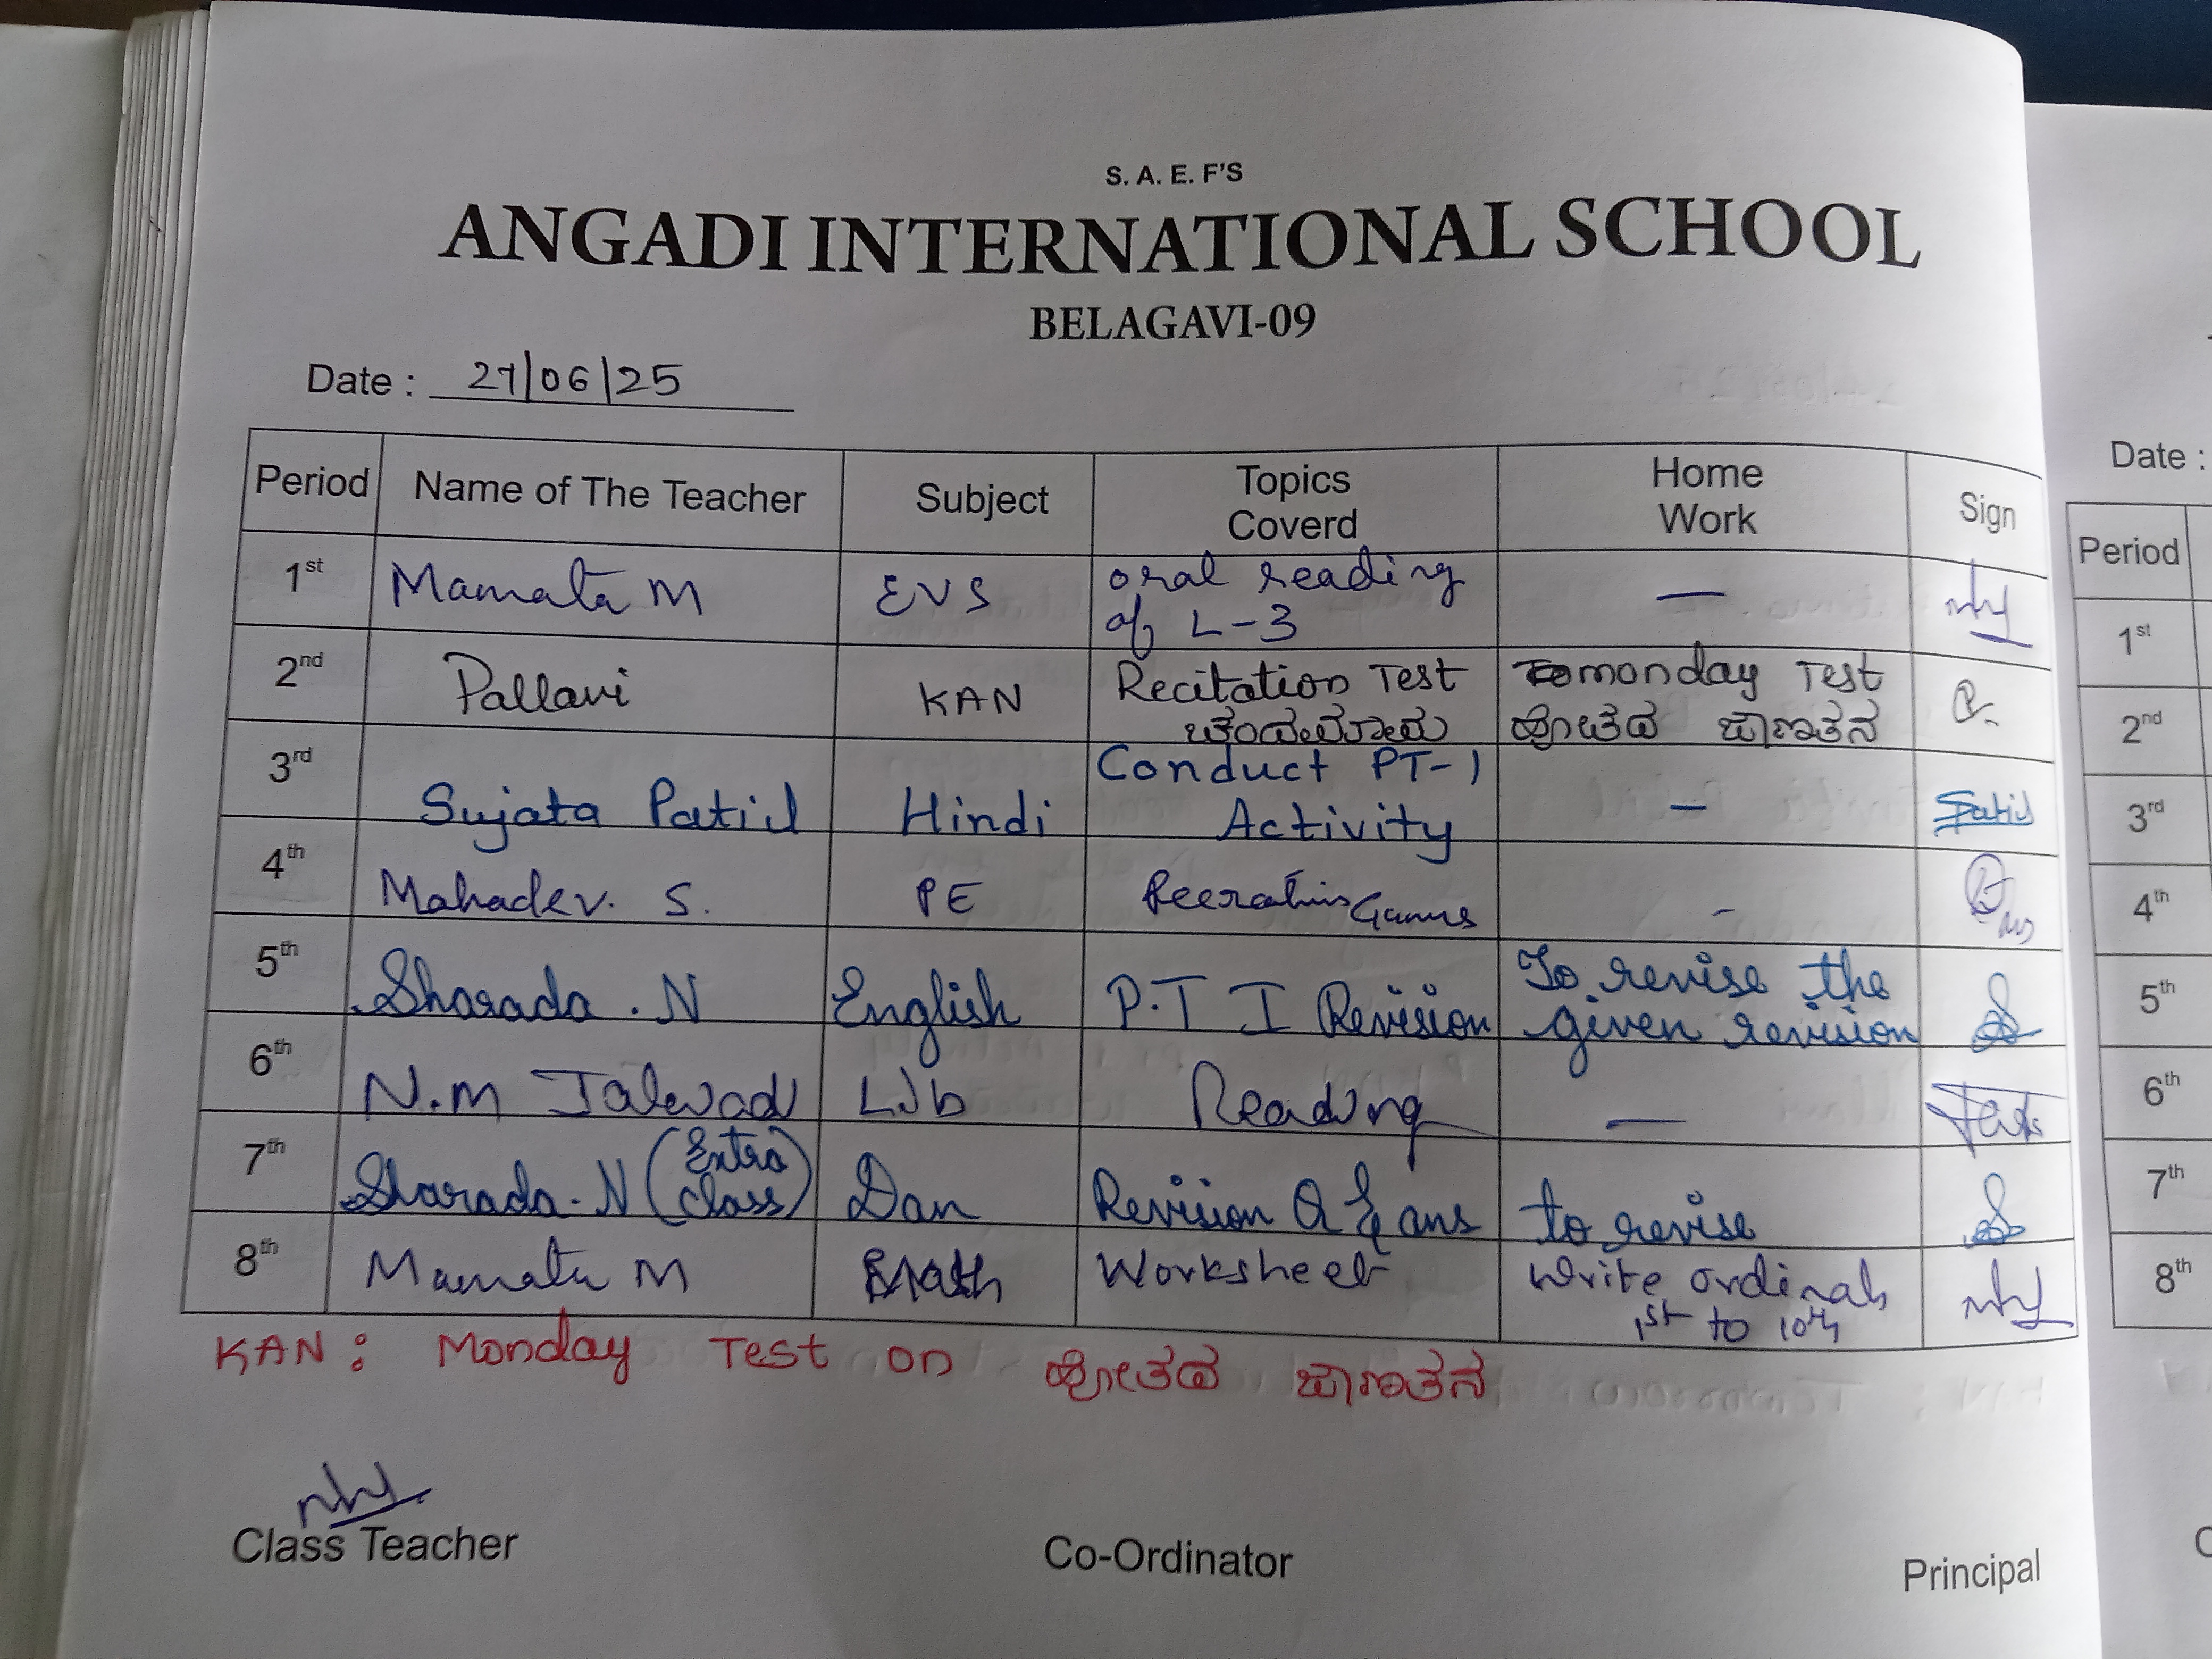 S. A. E. F'S
ANGADI INTERNATIONAL SCHOOL
BELAGAVI-09
Date : 27/06/25
Period Name of The Teacher Subject Topics Coverd Home Work Sign
1st Mamata M EVS oral reading of L-3 —
2nd Pallavi KAN Recitation Test monday Test
3rd Sujata Patil Hindi Conduct PT-1 Activity — SPatil
4th Mahadev. S. PE Games -
5th Sharada . N English P.T I Revision To revise the given revision
6th N.M Jalwad Lib Reading —
7th Sharada . N (Extra class) Dan Revision Q & ans to revise
8th Mamata M Math Worksheet Write ordinals 1st to 10th
KAN : Monday Test on
Class Teacher
Co-Ordinator
Principal
Date :
Period
1st
2nd
3rd
4th
5th
6th
7th
8th